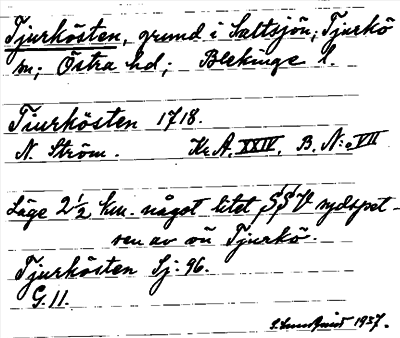 Tjurkösten, grund i Saltsjön; Tjurkö
sn; Östra hd; Blekinge l.
Tiurkösten 1718.
N. Ström. Kr A, XXIV, B. N:o VII
Läge 2 1/2 km. något litet SSV sydspet-
sen av ön Tjurkö.
Tjurkösten Sj. 96.
G. 11.
1937.